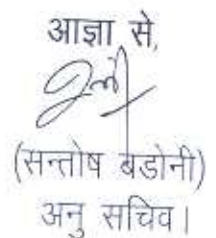 आज्ञा से,
(सन्तोष बडोनी)
अनु सचिव।